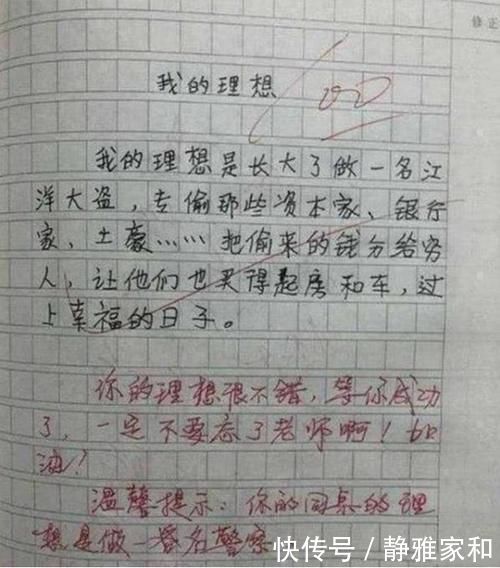 修正
我的理想
100
我的理想是长大了做一名江
洋大盗，专偷那些资本家、银行
家、土豪……把偷来的钱分给穷
人，让他们也买得起房和车，过
上幸福的日子。
你的理想很不错，等你成功
了，一定不要忘了老师啊！加
油！
温馨提示：你的同桌的理
想是做一番名警察
快传号 / 静雅家和